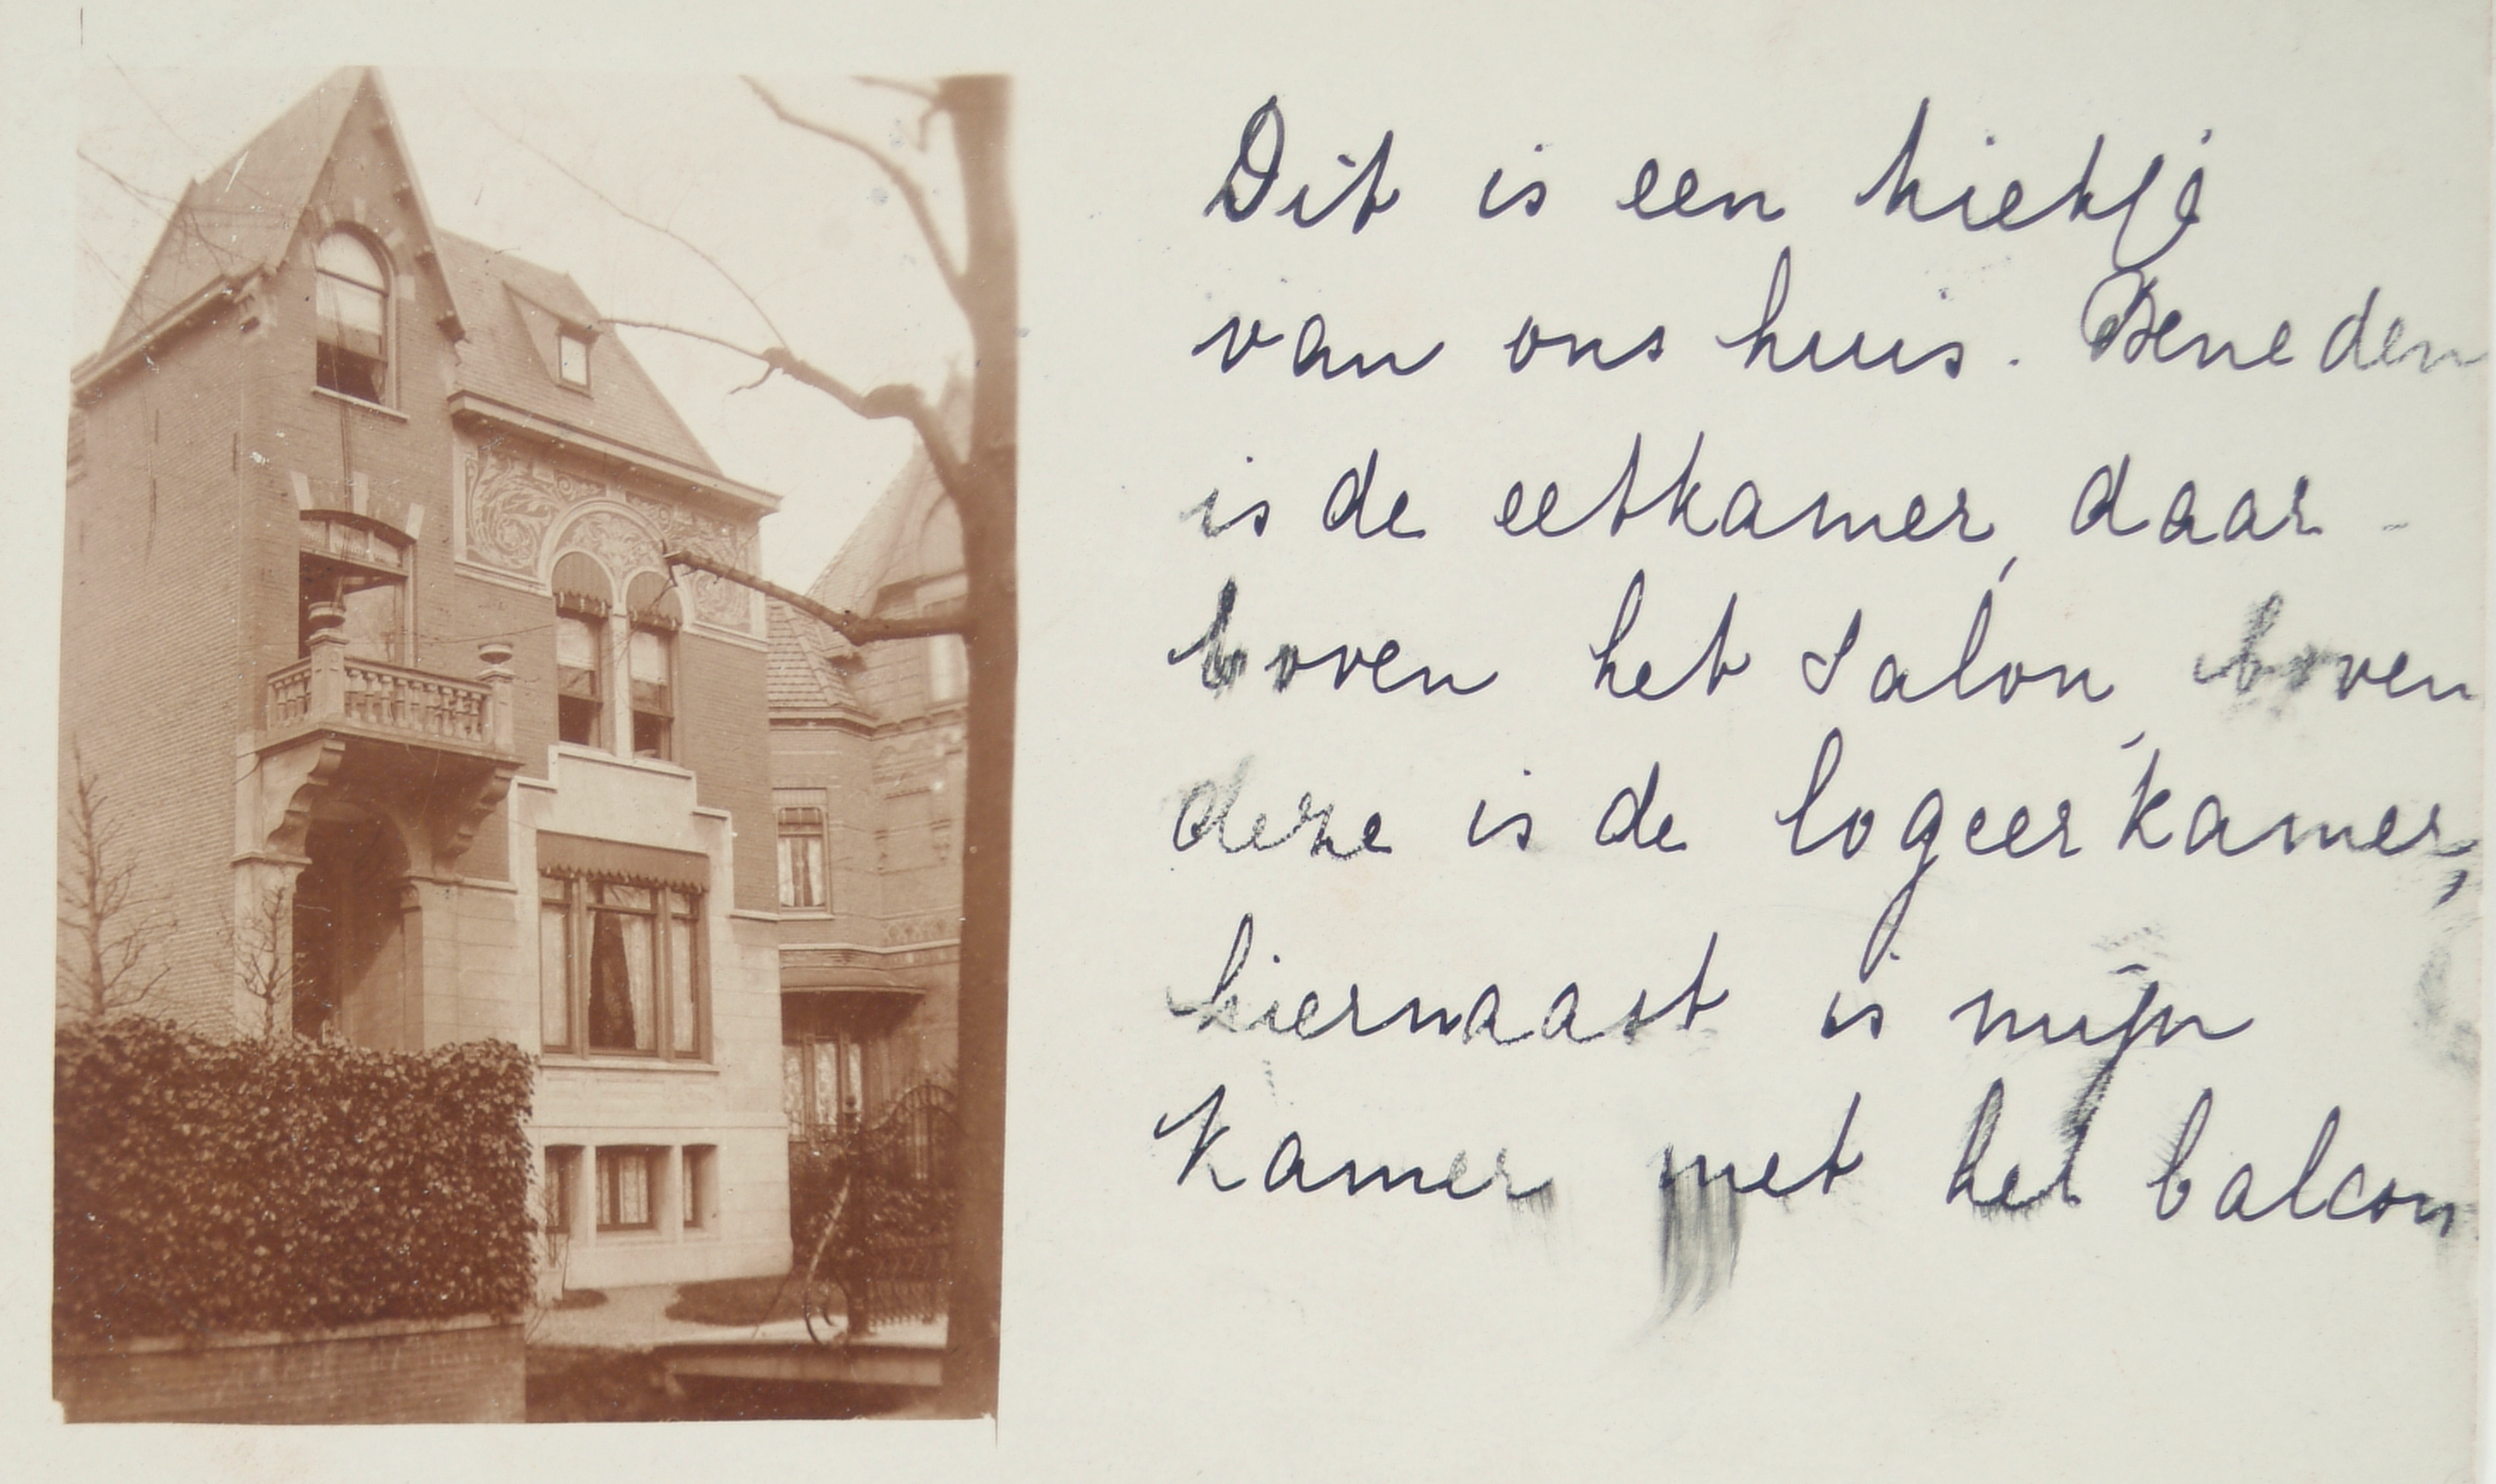 Dit is een kiekje
van ons huis. Beneden
is de eetkamer, daar-
boven het salon, boven
deze is de logeerkamer,
hiernaast is mijn
kamer met het balcon